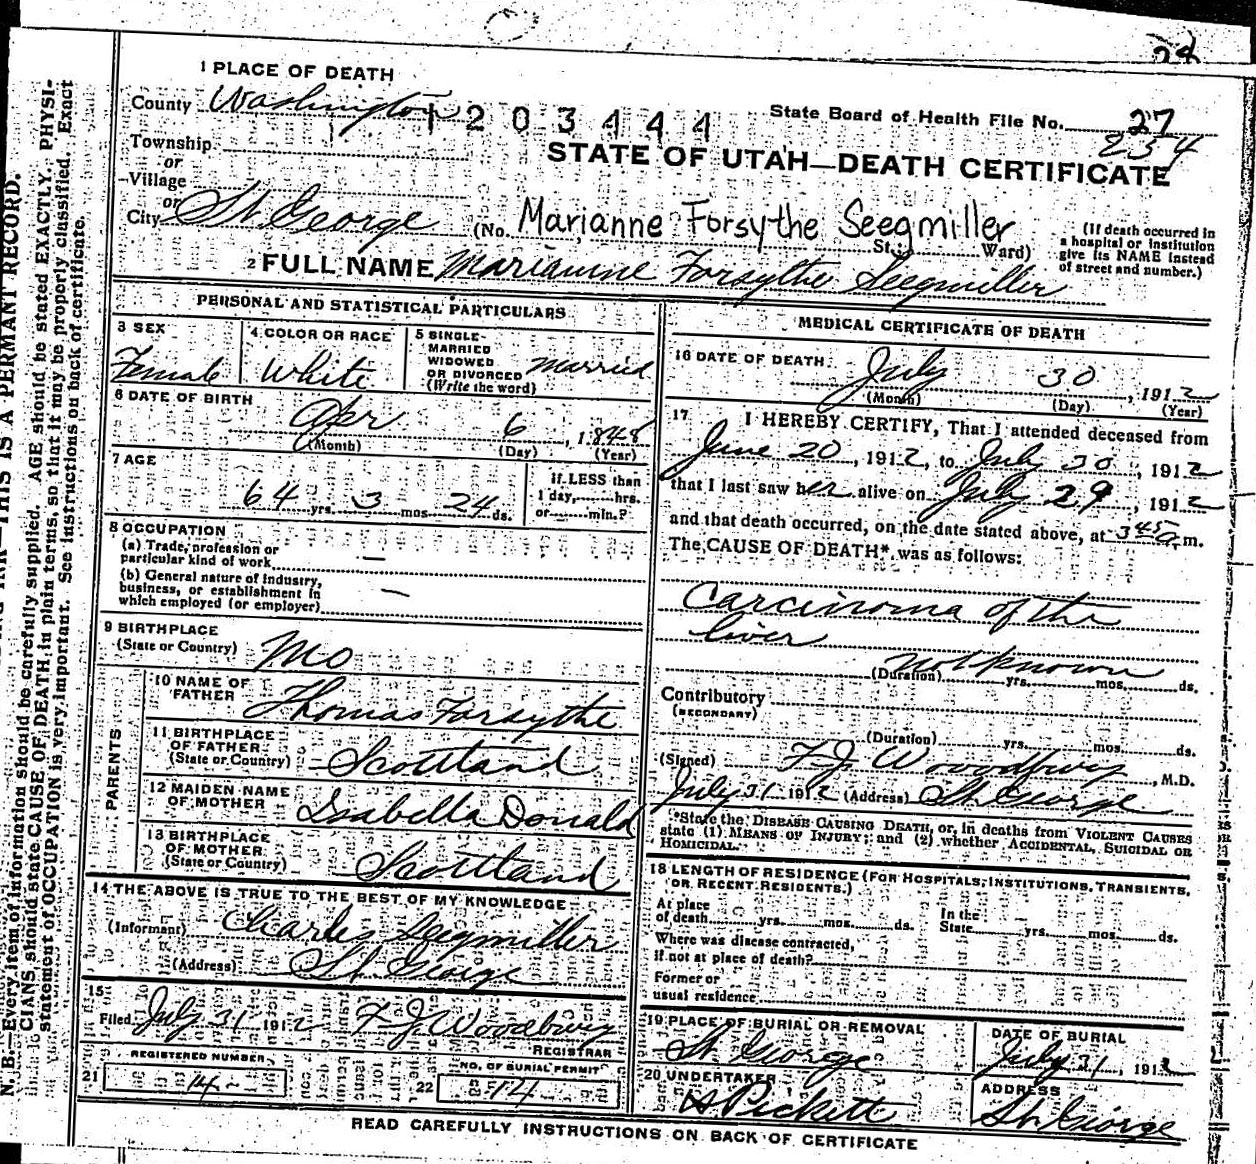 28
1 PLACE OF DEATH
County Washington
1 2 0 3 4 4 4
State Board of Health File No. 27
254
Township
or
Village
or
City St. George
STATE OF UTAH—DEATH CERTIFICATE
(No. Marianne Forsythe Seegmiller St.; Ward)
(If death occurred in
a hospital or institution
give its NAME instead
of street and number.)
2 FULL NAME Mariannne Forsythe Seegmiller
PERSONAL AND STATISTICAL PARTICULARS
3 SEX
Female
4 COLOR OR RACE
White
5 SINGLE-
MARRIED
WIDOWED
OR DIVORCED
(Write the word)
Married
6 DATE OF BIRTH
Apr 6, 1848
(Month) (Day) (Year)
7 AGE
64 yrs. 3 mos. 24 ds.
if LESS than
1 day, hrs.
or min.?
8 OCCUPATION
(a) Trade, profession or
particular kind of work —
(b) General nature of industry,
business, or establishment in
which employed (or employer) —
9 BIRTHPLACE
(State or Country) Mo
PARENTS
10 NAME OF
FATHER Thomas Forsythe
11 BIRTHPLACE
OF FATHER
(State or Country) Scottland
12 MAIDEN NAME
OF MOTHER Isabella Donald
13 BIRTHPLACE
OF MOTHER
(State or Country) Scottland
14 THE ABOVE IS TRUE TO THE BEST OF MY KNOWLEDGE
(Informant) Charles Seegmiller
(Address) St George
15
Filed July 31 1912 F J Woodbury
REGISTRAR
REGISTERED NUMBER
21 14
NO. OF BURIAL PERMIT
22 14
MEDICAL CERTIFICATE OF DEATH
16 DATE OF DEATH
July 30, 1912
(Month) (Day) (Year)
17 I HEREBY CERTIFY, That I attended deceased from
June 20, 1912, to July 30, 1912
that I last saw her alive on July 29, 1912
and that death occurred, on the date stated above, at 3 45 a m.
The CAUSE OF DEATH* was as follows:
Carcinoma of the
liver
not known
(Duration) yrs. mos. ds.
Contributory
(SECONDARY)
(Duration) yrs. mos. ds.
(Signed) F. J. Woodbury, M.D.
July 31 1912 (Address) St. George
*State the DISEASE CAUSING DEATH, or, in deaths from VIOLENT CAUSES
state (1) MEANS OF INJURY; and (2) whether ACCIDENTAL, SUICIDAL OR
HOMICIDAL.
18 LENGTH OF RESIDENCE (FOR HOSPITALS, INSTITUTIONS, TRANSIENTS,
OR RECENT RESIDENTS.)
At place
of death yrs. mos. ds.
In the
State yrs. mos. ds.
Where was disease contracted,
if not at place of death?
Former or
usual residence
19 PLACE OF BURIAL OR REMOVAL
St George
DATE OF BURIAL
July 31, 1912
20 UNDERTAKER
Pickett
ADDRESS
St. George
READ CAREFULLY INSTRUCTIONS ON BACK OF CERTIFICATE
THIS IS A PERMANT RECORD.
N. B.—Every item of information should be carefully supplied. AGE should be stated EXACTLY. PHYSI-
CIANS should state CAUSE OF DEATH in plain terms, so that it may be properly classified. Exact
statement of OCCUPATION is very important. See instructions on back of certificate.